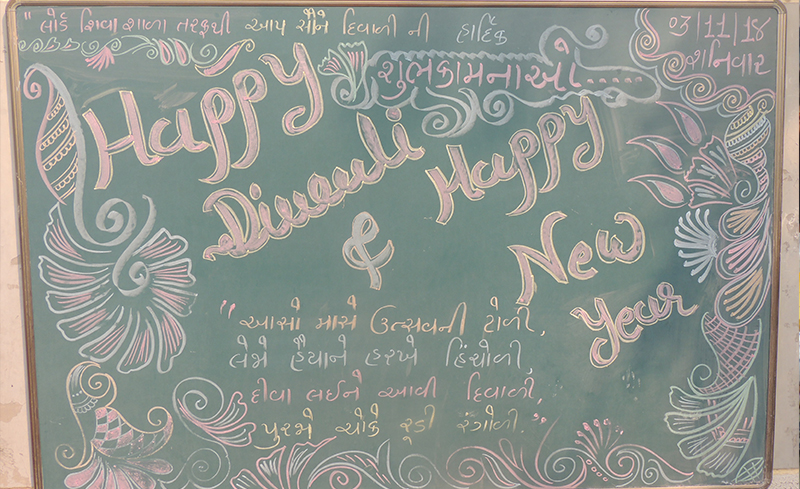 "લોર્ડ શિવા શાળા તરફથી આપ સૌને દિવાળી ની હાર્દિક
શુભકામનાઓ......
03/11/18
શનિવાર
Happy
Diwali
&
Happy
New
Year
"આસો માસે ઉત્સવની ટોળી,
લેજો હૈયાને હરખે હિંચોળી,
દીવા લઈને આવી દિવાળી,
પુરજો ચોકે રૂડી રંગોળી."